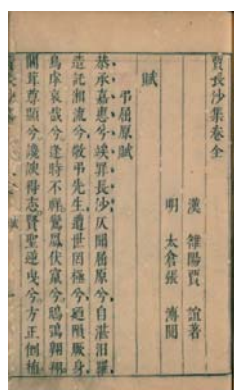 賈長沙集卷全
漢 雒陽賈 誼著
明 太倉張 溥閱
賦
弔屈原賦
恭承嘉惠兮竢罪長沙仄聞屈原兮自湛汨羅
造託湘流兮敬弔先生遭世罔極兮迺隕厥身
烏虖哀哉兮逢時不祥鸞鳳伏竄兮鴟鴞翱翔
闒茸尊顯兮讒諛得志賢聖逆曳兮方正倒植